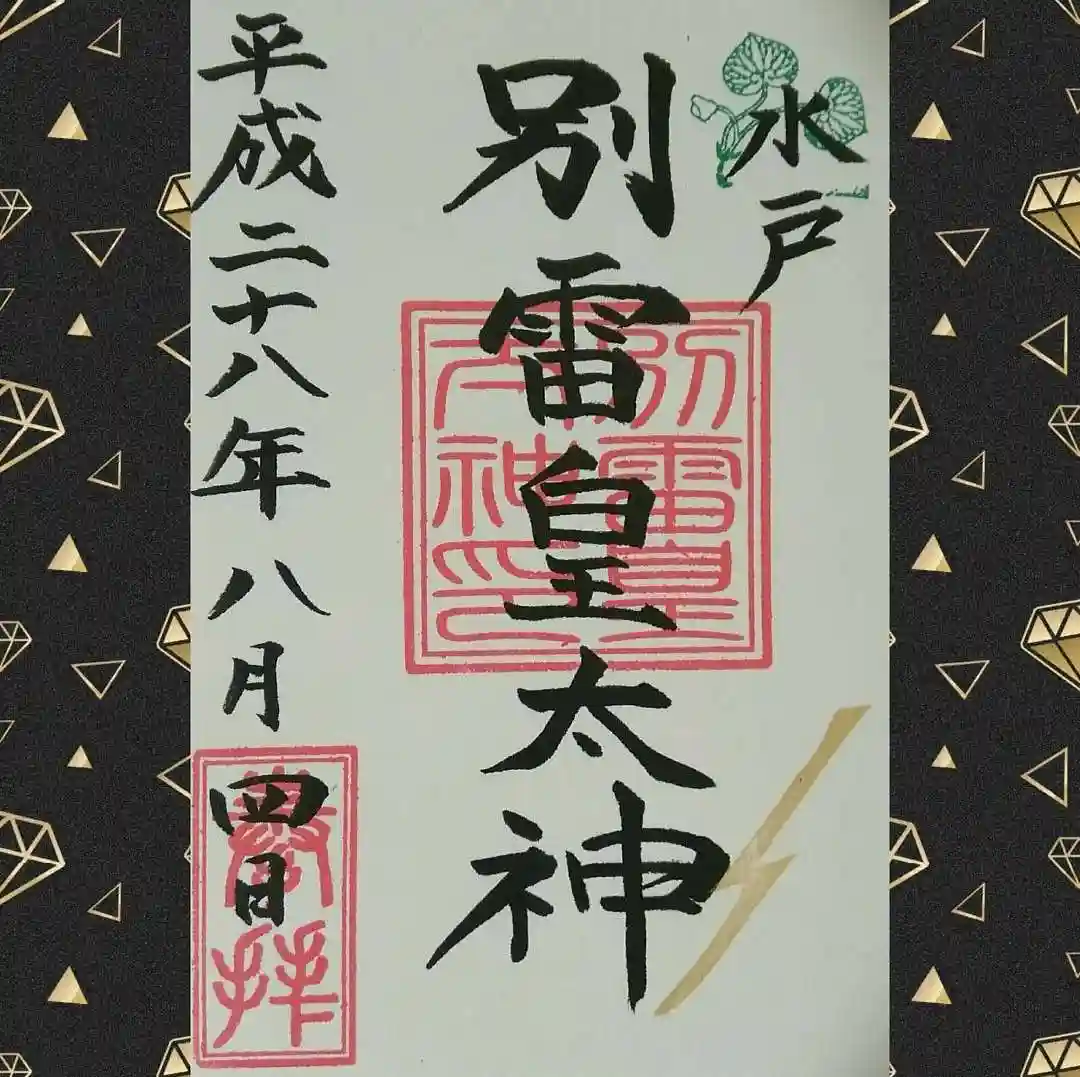 水戸
別雷皇太神
別雷皇
太神印
平成二十八年八月四日
奉拝